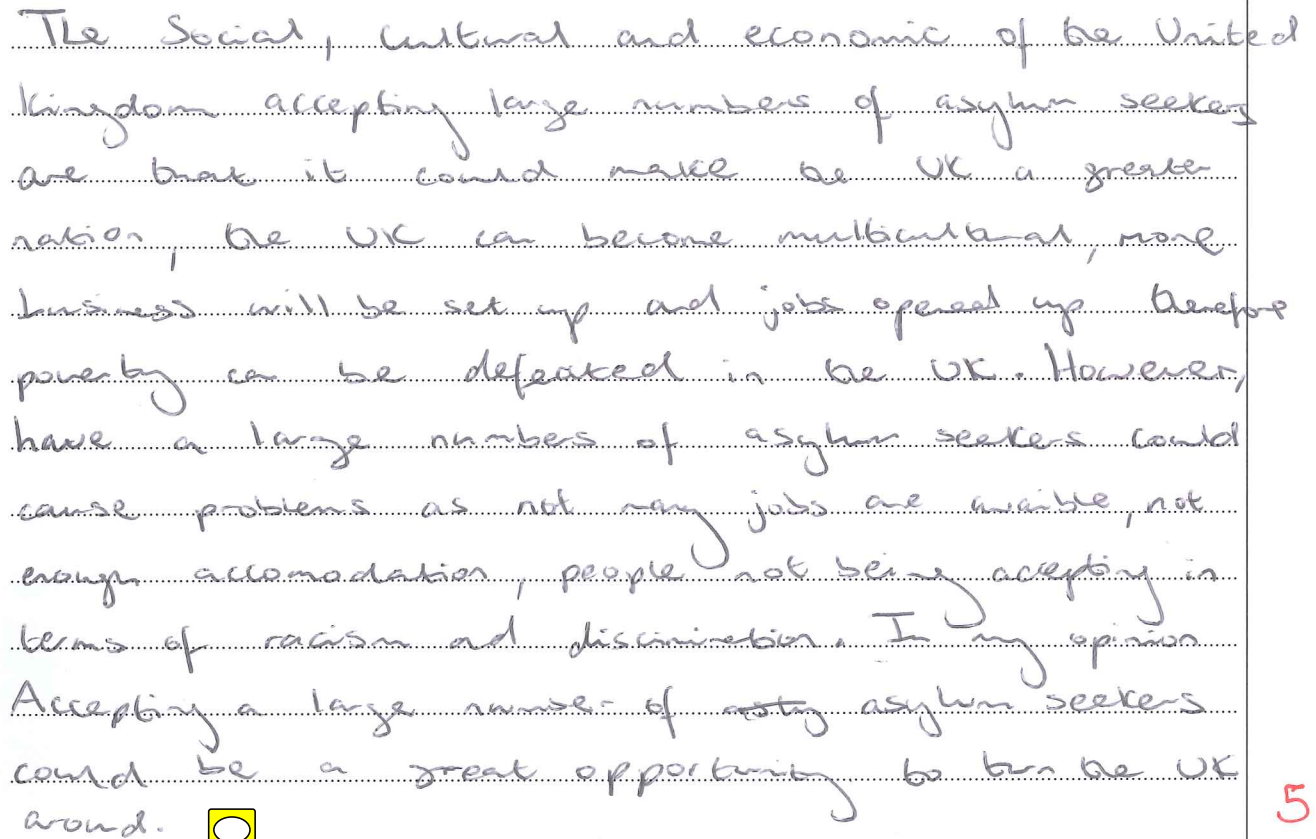 The Social, Cultural and economic of the United
Kingdom accepting large numbers of asylum seekers
are that it could make the UK a greater
nation, the UK can become multicultural, more
business will be set up and jobs opened up therefore
poverty can be defeated in the UK. However,
have a large numbers of asylum seekers could
cause problems as not many jobs are avaible, not
enough accomodation, people not being accepting in
terms of racism and discimination. In my opinion
Accepting a large number of asylum seekers
could be a great opportunity to turn the UK
around.
5